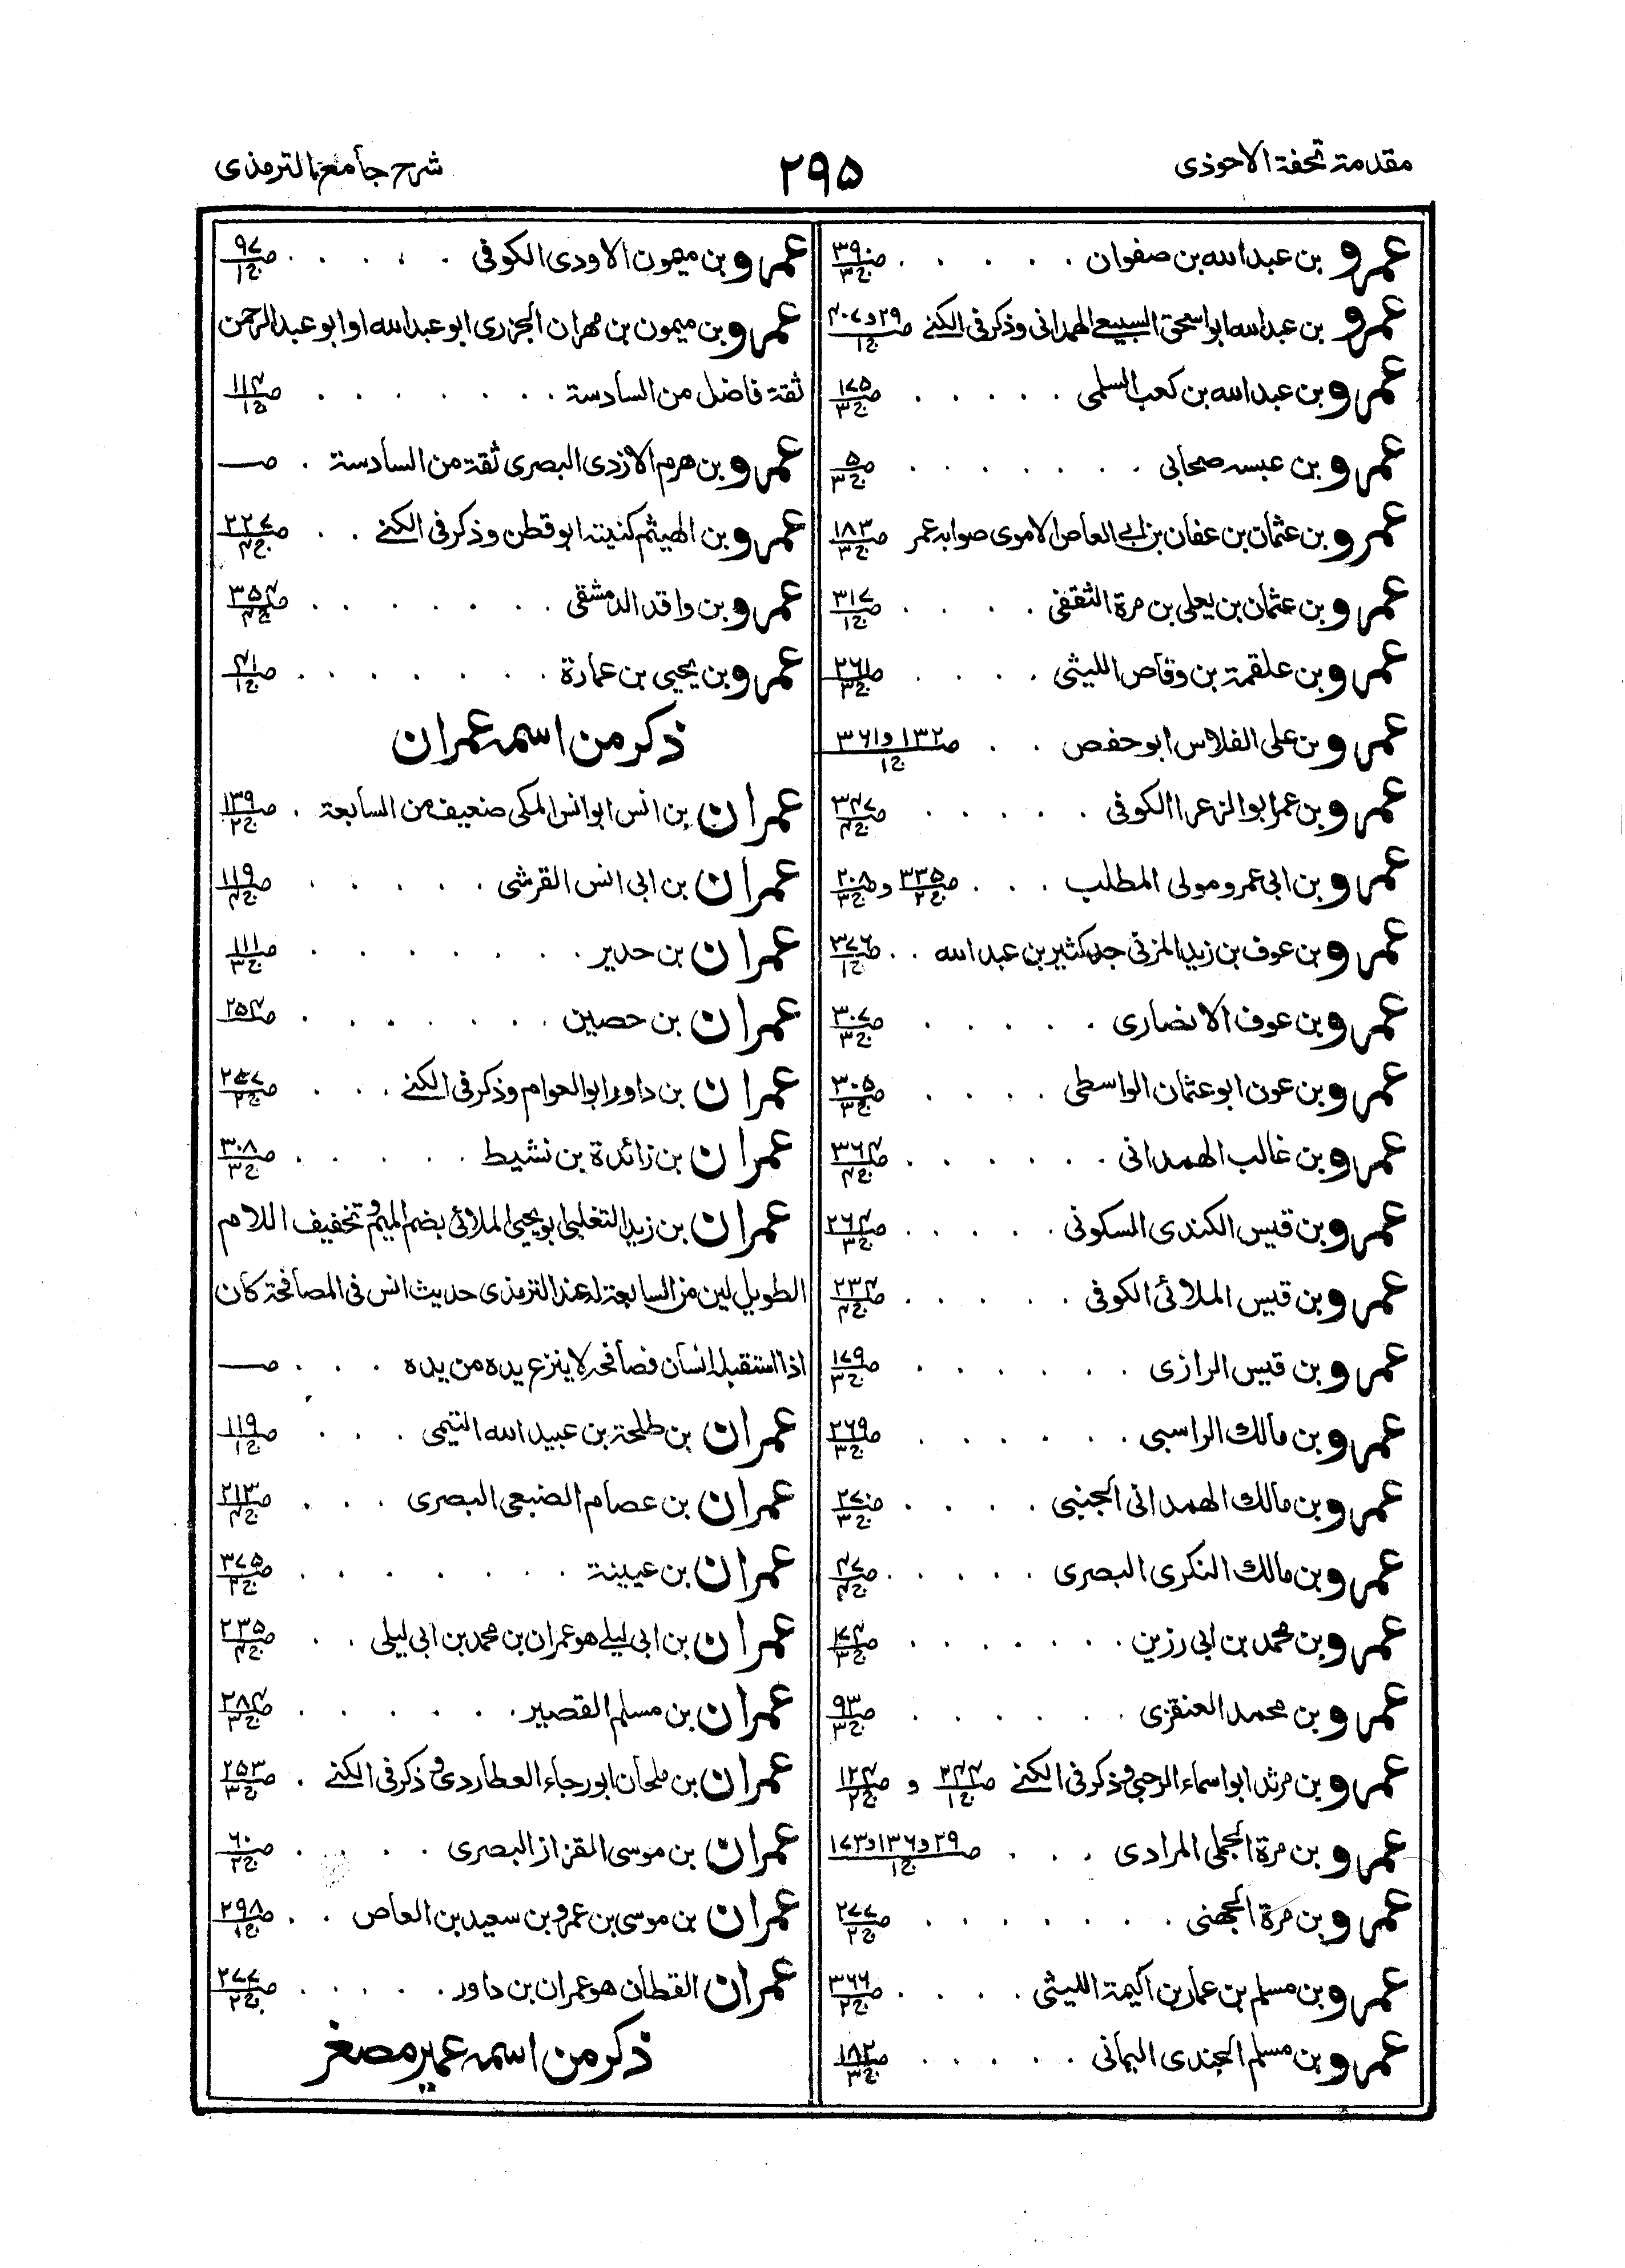 مقدمة تحفة الاحوذى
٢٩٥
شرح جامع الترمذى
عمرو بن عبدالله بن صفوان . . . . . صـ٣٩٠ ج٣
عمرو بن عبدالله ابواسحق السبيعى الهمدانى وذكر فى الكنے صـ٢٩ و٢٠٧ ج١
عمرو بن عبدالله بن كعب السلمى . . . . . صـ١٧٥ ج٣
عمرو بن عبسه صحابى . . . . . . . صـ٥ ج٣
عمرو بن عثمان بن عفان بن ابى العاص الاموى صوابه عمر صـ١٨٣ ج٣
عمرو بن عثمان بن يعلى بن مرة الثقفى . . . . صـ٣١٧ ج١
عمرو بن علقمة بن وقاص الليثى . . . . صـ٢٦١ ج٣
عمرو بن على الفلاس ابوحفص . . صـ١٣٢ و٣٦١ ج١
عمرو بن عمر ابوالزعراالكوفى . . . . . صـ٣٤٧ ج٤
عمرو بن ابى عمرو مولى المطلب . . . صـ٣٣٥ ج٢ وصـ٢٠٨ ج٣
عمرو بن عوف بن زيد المزنى جد كثير بن عبدالله . . صـ٣٧٦ ج١
عمرو بن عوف الانصارى . . . . . صـ٣٠٧ ج٣
عمرو بن عون ابوعثمان الواسطى . . . . صـ٣٠٥ ج٣
عمرو بن غالب الهمدانى . . . . . . صـ٣٦٤ ج٤
عمرو بن قيس الكندى السكونى . . . . . صـ٢٦٤ ج٣
عمرو بن قيس الملائى الكوفى . . . . . صـ٢٣٤ ج٤
عمرو بن قيس الرازى . . . . . . صـ١٧٩ ج٣
عمرو بن مالك الراسبى . . . . . . صـ٢٦٩ ج٣
عمرو بن مالك الهمدانى الجنبى . . . . صـ٢٧٠ ج٣
عمرو بن مالك النكرى البصرى . . . . . صـ٤٧ ج٤
عمرو بن محمد بن ابى رزين . . . . . . . صـ١٧٤ ج٣
عمرو بن محمد العنقزى . . . . . . صـ٩٣ ج٣
عمرو بن مرثد ابواسماء الرحبى وذكر فى الكنے صـ٣٤٤ ج١ و صـ١٢٤ ج٢
عمرو بن مرة الجملى المرادى . . . صـ٢٩ و١٣٦ و١٧٣ ج١
عمرو بن مرة الجهنى . . . . . . . صـ٢٧٧ ج٢
عمرو بن مسلم بن عمار بن اكيمة الليثى . . . . صـ٣٦٦ ج٢
عمرو بن مسلم الجندى اليمانى . . . . . صـ١٨٢ ج٣
عمرو بن ميمون الاودى الكوفى . . . . . صـ٩٧ ج١
عمرو بن ميمون بن مهران الجزرى ابوعبدالله او ابوعبدالرحمن
ثقة فاضل من السادسة . . . . . . . صـ١١٤ ج١
عمرو بن هرم الازدى البصرى ثقة من السادسة . صـ
عمرو بن الهيثم كنيته ابوقطن وذكر فى الكنے . . صـ٢٢٧ ج٤
عمرو بن واقد الدمشقى . . . . . . . صـ٣٥٤ ج٤
عمرو بن يحيى بن عمارة . . . . . . . صـ٤١ ج١
ذكر من اسمه عمران
عمران بن انس ابوانس المكى ضعيف من السابعة . صـ١٣٩ ج٢
عمران بن ابى انس القرشى . . . . . صـ١١٩ ج٤
عمران بن حدير . . . . . . . صـ١١١ ج٣
عمران بن حصين . . . . . . . صـ٢٥٤
عمران بن داور ابوالعوام وذكر فى الكنے . . . صـ٢٧٧ ج٢
عمران بن زائدة بن نشيط . . . . . صـ٣٠٨ ج٣
عمران بن زيد التغلبى ابويحيى الملائى بضم الميم وتخفيف اللام
الطويل لين من السابعة له عند الترمذى حديث انس فى المصافحة كان
اذا استقبله انسان فصافحه لا ينزع يده من يده . . . صـ
عمران بن طلحة بن عبيد الله التيمى . . . صـ١١٩ ج١
عمران بن عصام الضبعى البصرى . . . صـ٢١٣ ج٤
عمران بن عيينة . . . . . . . صـ٣٧٥ ج٢
عمران بن ابى ليلے هو عمران بن محمد بن ابى ليلى . . صـ٢٣٥ ج٤
عمران بن مسلم القصير . . . . . . صـ٢٨٤ ج٣
عمران بن ملحان ابورجاء العطاردى وذكر فى الكنے . صـ٢٥٣ ج٣
عمران بن موسى القزاز البصرى . . . . صـ٦٠ ج٢
عمران بن موسى بن عمرو بن سعيد بن العاص . . صـ٢٩٨ ج١
عمران القطان هو عمران بن داور . . . . . صـ٢٧٧ ج٢
ذكر من اسمه عمير مصغر